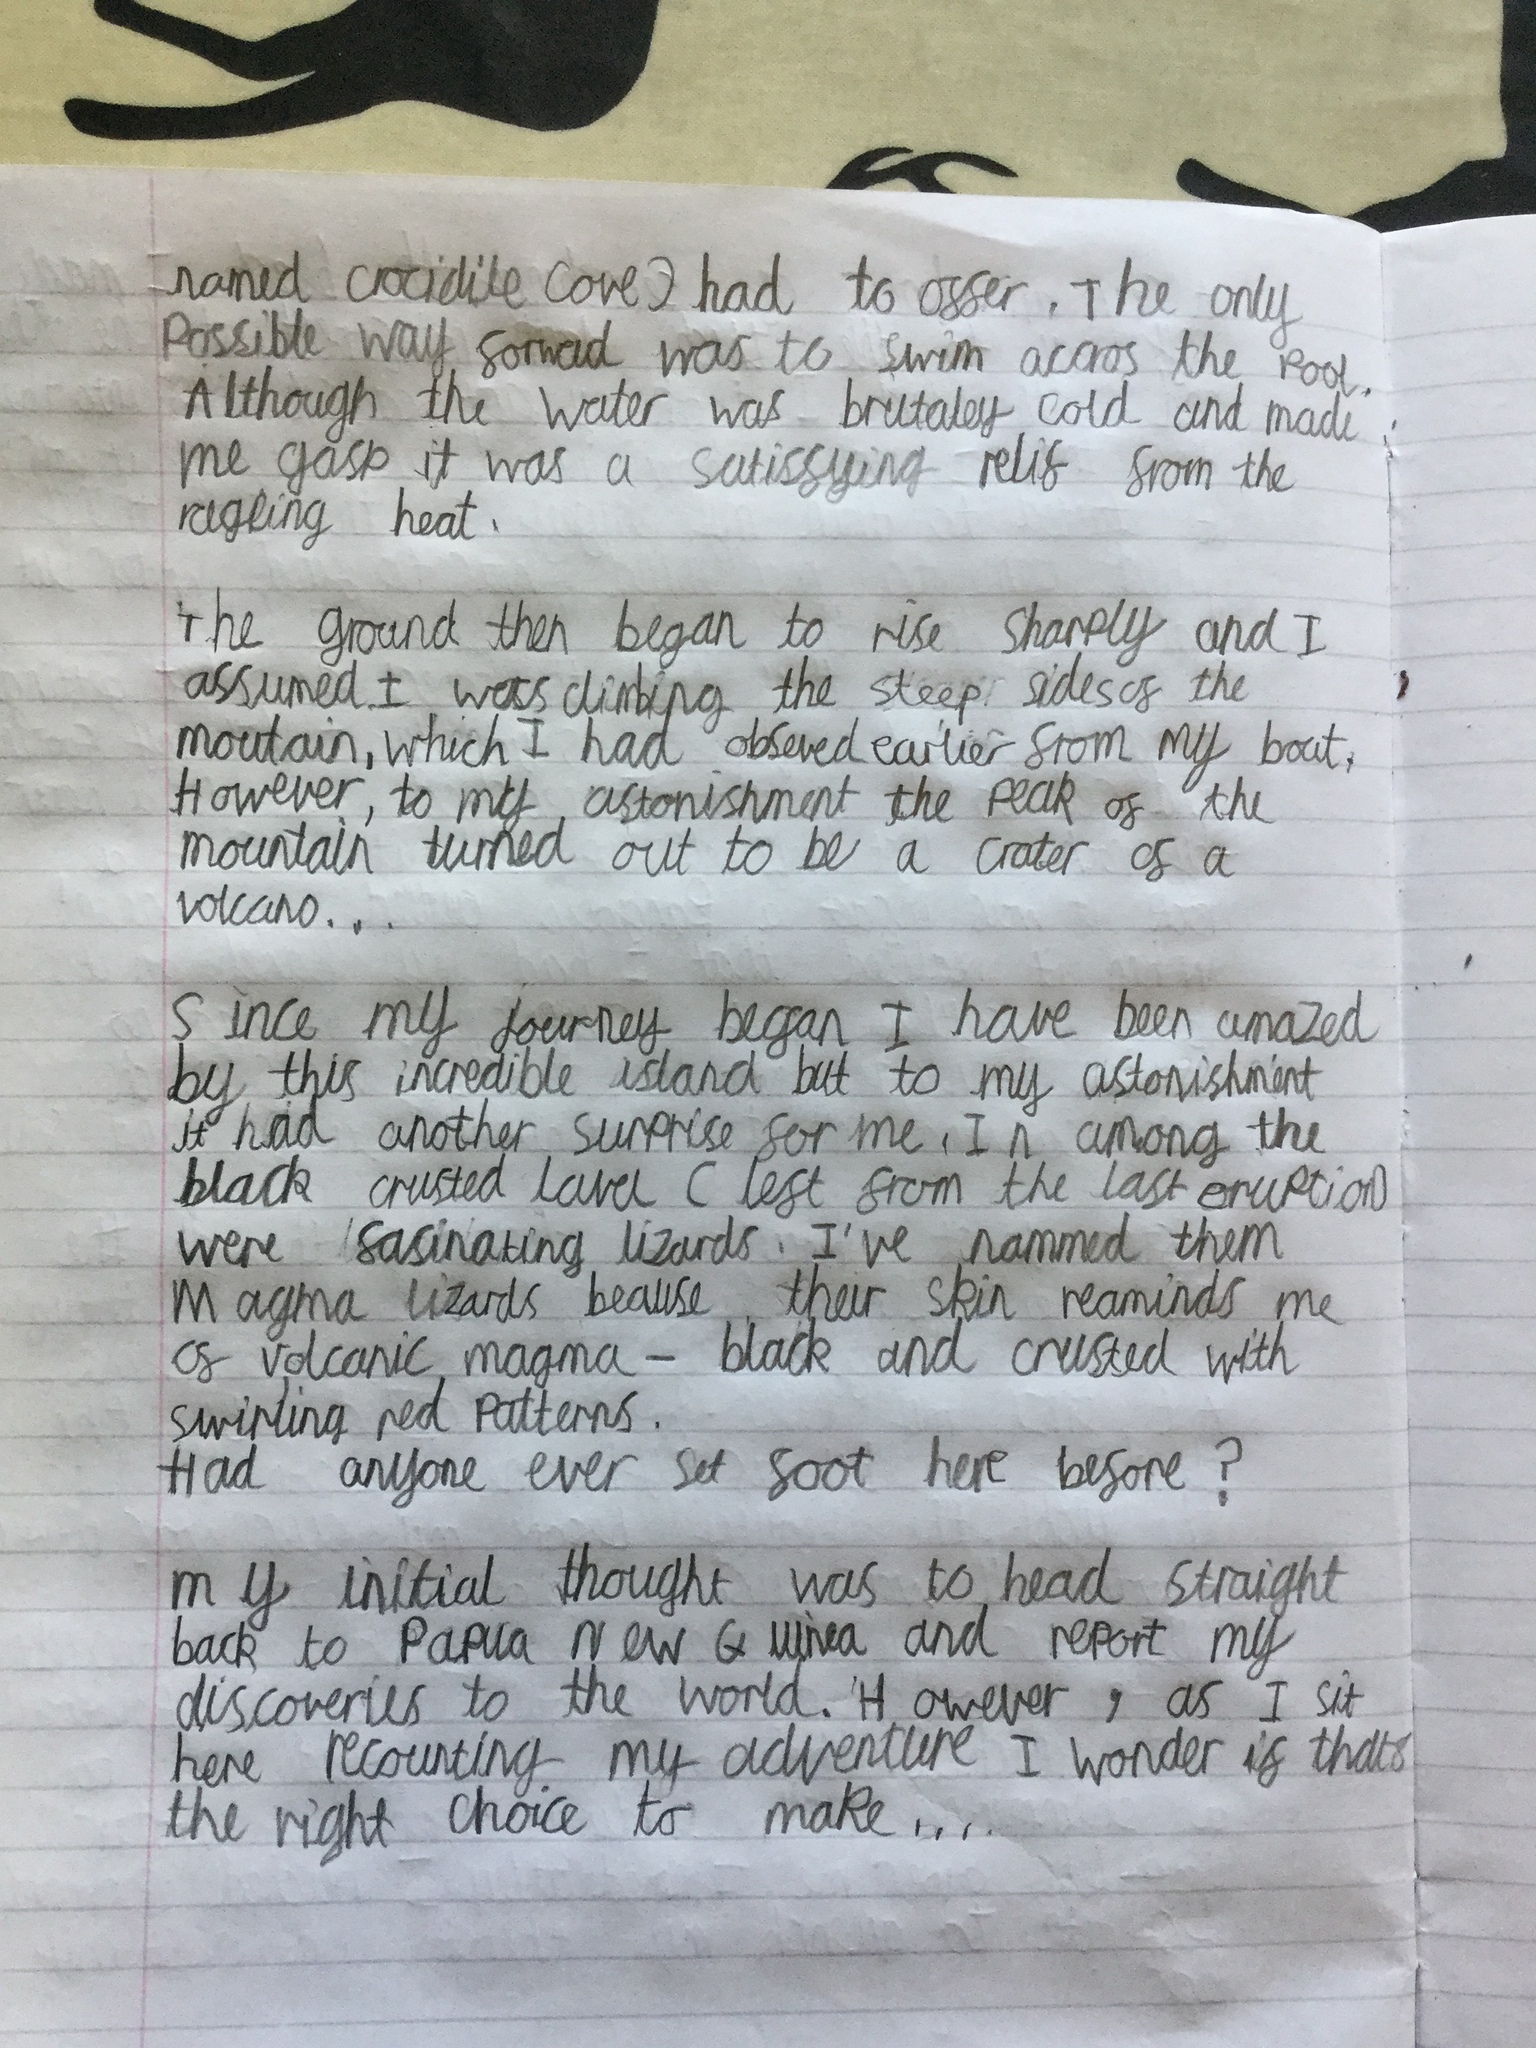 named crocidile Cove) had to offer. The only
Possible way forward was to swim accros the Pool.
Although the water was brutaley cold and made
me gasp it was a satisfying relif from the
heat.
The ground then began to rise sharply and I
assumed I was climbing the steep sides of the
moutain, which I had obseved earlier from my boat.
However, to my astonishment the Peak of the
mountain turned out to be a crater of a
volcano...
Since my journey began I have been amazed
by this incredible island but to my astonishment
it had another surprise for me. In among the
black crusted lava ( left from the last eruption)
were fasinating lizards. I've nammed them
Magma lizards beause their skin reaminds me
of volcanic magma - black and crusted with
swirling red Patterns.
Had anyone ever set foot here before?
My initial thought was to head straight
back to Papua New Guinea and report my
discoveries to the world. However, as I sit
here recounting my adventure I wonder if thats
the right choice to make....